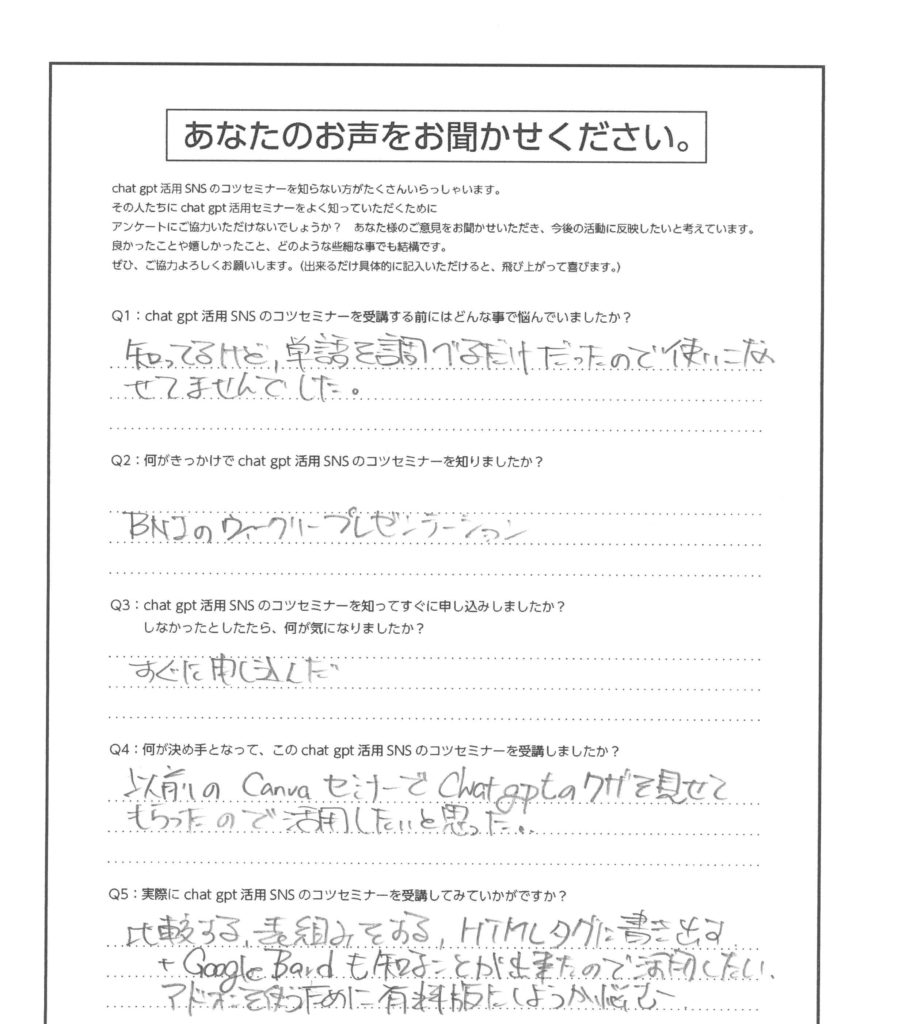 あなたのお声をお聞かせください。
chat gpt 活用 SNS のコツセミナーを知らない方がたくさんいらっしゃいます。
その人たちに chat gpt 活用セミナーをよく知っていただくために
アンケートにご協力いただけないでしょうか？　あなた様のご意見をお聞かせいただき、今後の活動に反映したいと考えています。
良かったことや嬉しかったこと、どのような些細な事でも結構です。
ぜひ、ご協力よろしくお願いします。（出来るだけ具体的に記入いただけると、飛び上がって喜びます。）
Q1：chat gpt 活用 SNS のコツセミナーを受講する前にはどんな事で悩んでいましたか？
知ってるけど，単語を調べるだけだったので使いこな
せてませんでした。
Q2：何がきっかけで chat gpt 活用 SNS のコツセミナーを知りましたか？
BNIのウィークリープレゼンテーション
Q3：chat gpt 活用 SNS のコツセミナーを知ってすぐに申し込みしましたか？
しなかったとしたたら、何が気になりましたか？
すぐに申し込んだ
Q4：何が決め手となって、この chat gpt 活用 SNS のコツセミナーを受講しましたか？
以前の Canva セミナーで Chatgptのワザを見せて
もらったので活用したいと思った。
Q5：実際に chat gpt 活用 SNS のコツセミナーを受講してみていかがですか？
比較する，表組みをする，HTMLタグに書き出す
+ Google Bard も知ることが出来たので活用したい、
アドオンを使うために有料版にしようか悩む〜